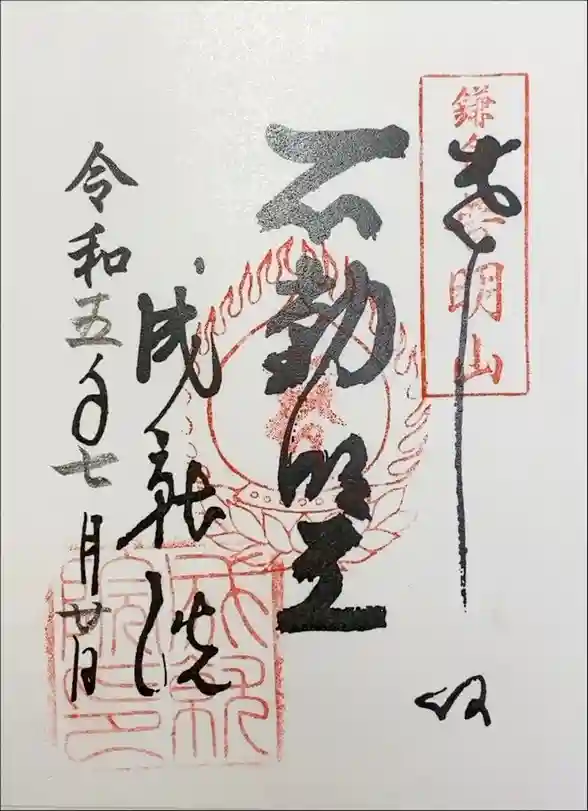 鎌倉普明山
奉拝
不動明王
成就院
成就院印
令和五年七月廿日